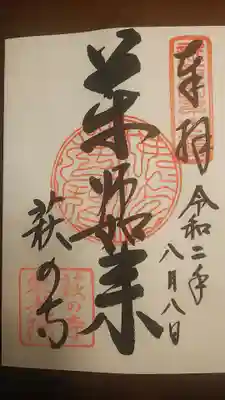 奉拝
令和二年
八月八日
薬师如来
萩の寺
萩の寺